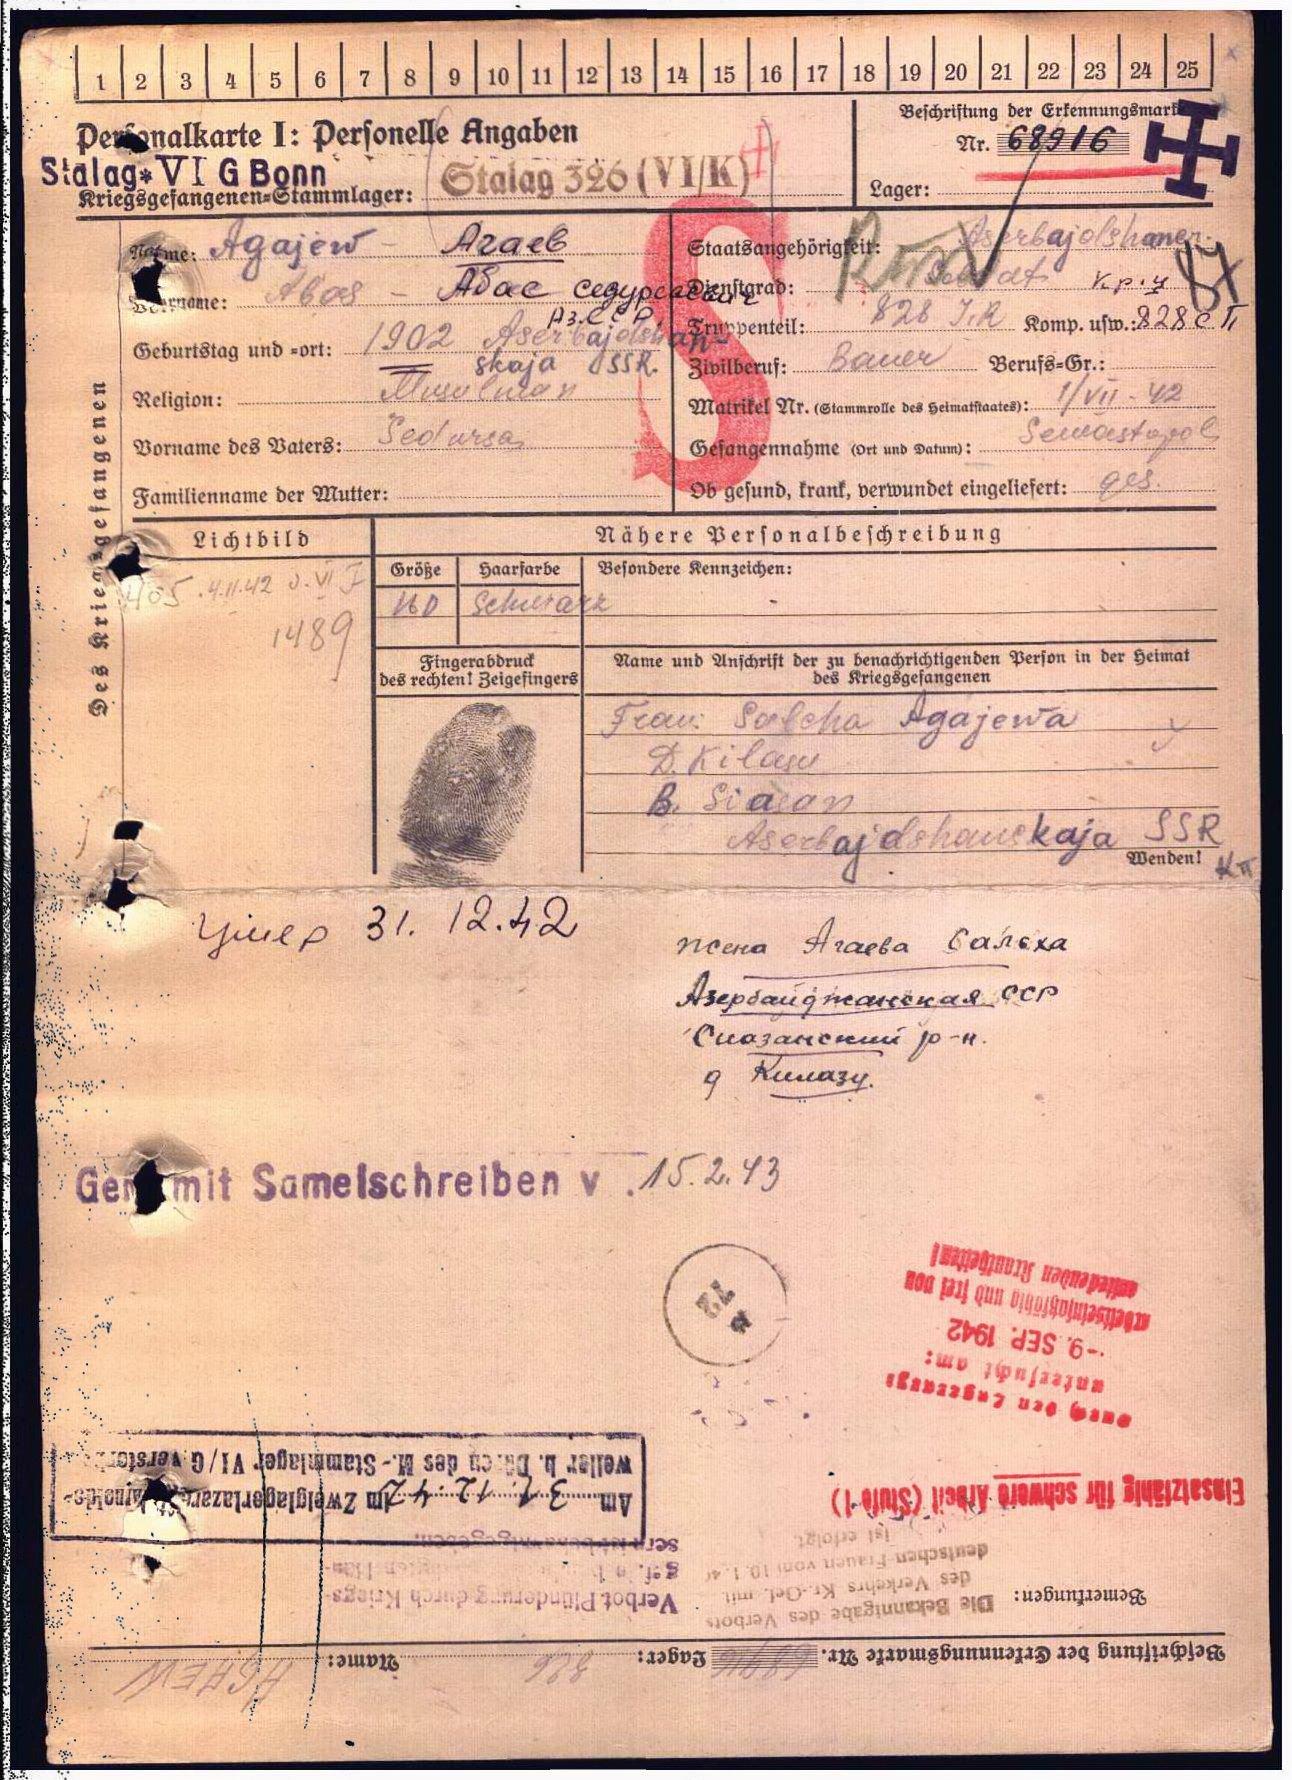 1 2 3 4 5 6 7 8 9 10 11 12 13 14 15 16 17 18 19 20 21 22 23 24 25
Personalkarte I: Personelle Angaben
Stalag VI G Bonn
Kriegsgefangenen-Stammlager: Stalag 326 (VI/K)
Beschriftung der Erkennungsmarke
Nr. 68916
Lager:
Des Kriegsgefangenen
Name: Agajew - Агаев
Vorname: Abas - Абас
Аз.ССР.
Geburtstag und -ort: 1902 Aserbajdshan-
skaja SSR.
Religion: Musulman
Vorname des Vaters: Sedursa
Familienname der Mutter:
S
Staatsangehörigkeit: Aserbajdshaner.
Dienstgrad: Soldat кр-ц
Truppenteil: 828 I.R Komp. usw.: 828 сп
Zivilberuf: Bauer Berufs-Gr.:
Matrikel Nr. (Stammrolle des Heimatstaates): 1/VII - 42
Gefangennahme (Ort und Datum): Sewastopol
Ob gesund, krank, verwundet eingeliefert: ges.
Lichtbild
4.11.42
1489
Nähere Personalbeschreibung
Größe Haarfarbe Besondere Kennzeichen:
160 Schwarz -
Fingerabdruck
des rechten! Zeigefingers
Name und Anschrift der zu benachrichtigenden Person in der Heimat
des Kriegsgefangenen
Frau: Salcha Agajewa
D. Kilasu
B. Siasan
Aserbajdshanskaja SSR
Wenden!
Умер 31. 12.42
жена Агаева Салька
Азербайджанская ССР
Сиазанский р-н.
д Килазу.
mit Samelschreiben v. 15.2.43
72
arbeitseinsatzfähig und frei von
ansteckenden Krankheiten!
-9. SEP. 1942
untersucht am:
durch den Lagerarzt
Einsatzfähig für schwere Arbeit (Stufe 1)
Am 31.12.42 im Zweiglagerlazarett Arnolds-
weiler b. Düren des M.-Stammlager VI/G verstorben
Verbot Plünderung durch Kriegs-
Bemerkungen: Die Bekanntgabe des Verbots
des Verkehrs Kr.-Gef. mit
deutschen Frauen vom 10.1.
ist erfolgt
Beschriftung der Erkennungsmarke Nr. 68916 Lager: 326 Name: AGAEW